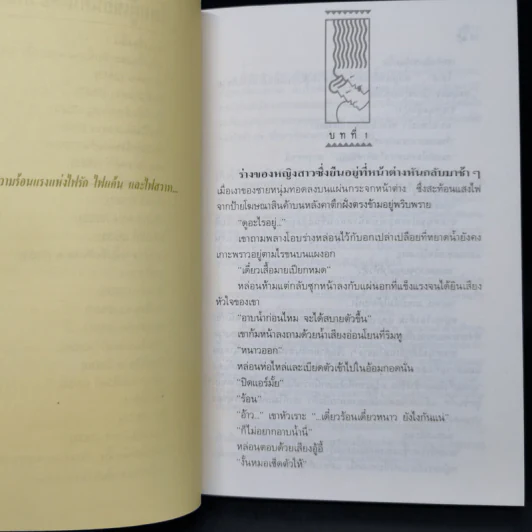 ความร้อนแรงแห่งไฟรัก ไฟแค้น และไฟสวาท...
บทที่ ๑
ร่างของหญิงสาวซึ่งยืนอยู่ที่หน้าต่างหันกลับมาช้า ๆ
เมื่อเงาของชายหนุ่มทอดลงบนแผ่นกระจกหน้าต่าง ซึ่งสะท้อนแสงไฟ
จากป้ายโฆษณาสินค้าบนหลังคาตึกฝั่งตรงข้ามอยู่พริบพราย
"ดูอะไรอยู่.."
เขาถามพลางโอบร่างหล่อนไว้กับอกเปล่าเปลือยที่หยาดน้ำยังคง
เกาะพราวอยู่ตามไรขนบนแผงอก
"เดี๋ยวเสื้อมายเปียกหมด"
หล่อนห้ามแต่กลับซุกหน้าลงกับแผ่นอกที่แข็งแรงจนได้ยินเสียง
หัวใจของเขา
"อาบน้ำก่อนไหม จะได้สบายตัวขึ้น"
เขาก้มหน้าลงถามด้วยน้ำเสียงอ่อนโยนที่ริมหู
"หนาวออก"
หล่อนห่อไหล่และเบียดตัวเข้าไปในอ้อมกอดนั่น
"ปิดแอร์มั้ย"
"ร้อน"
"อ้าว.." เขาหัวเราะ "...เดี๋ยวร้อนเดี๋ยวหนาว ยังไงกันแน่"
"ก็ไม่อยากอาบน้ำนี่"
หล่อนตอบด้วยเสียงอู้อี้
"งั้นหมอเช็ดตัวให้"